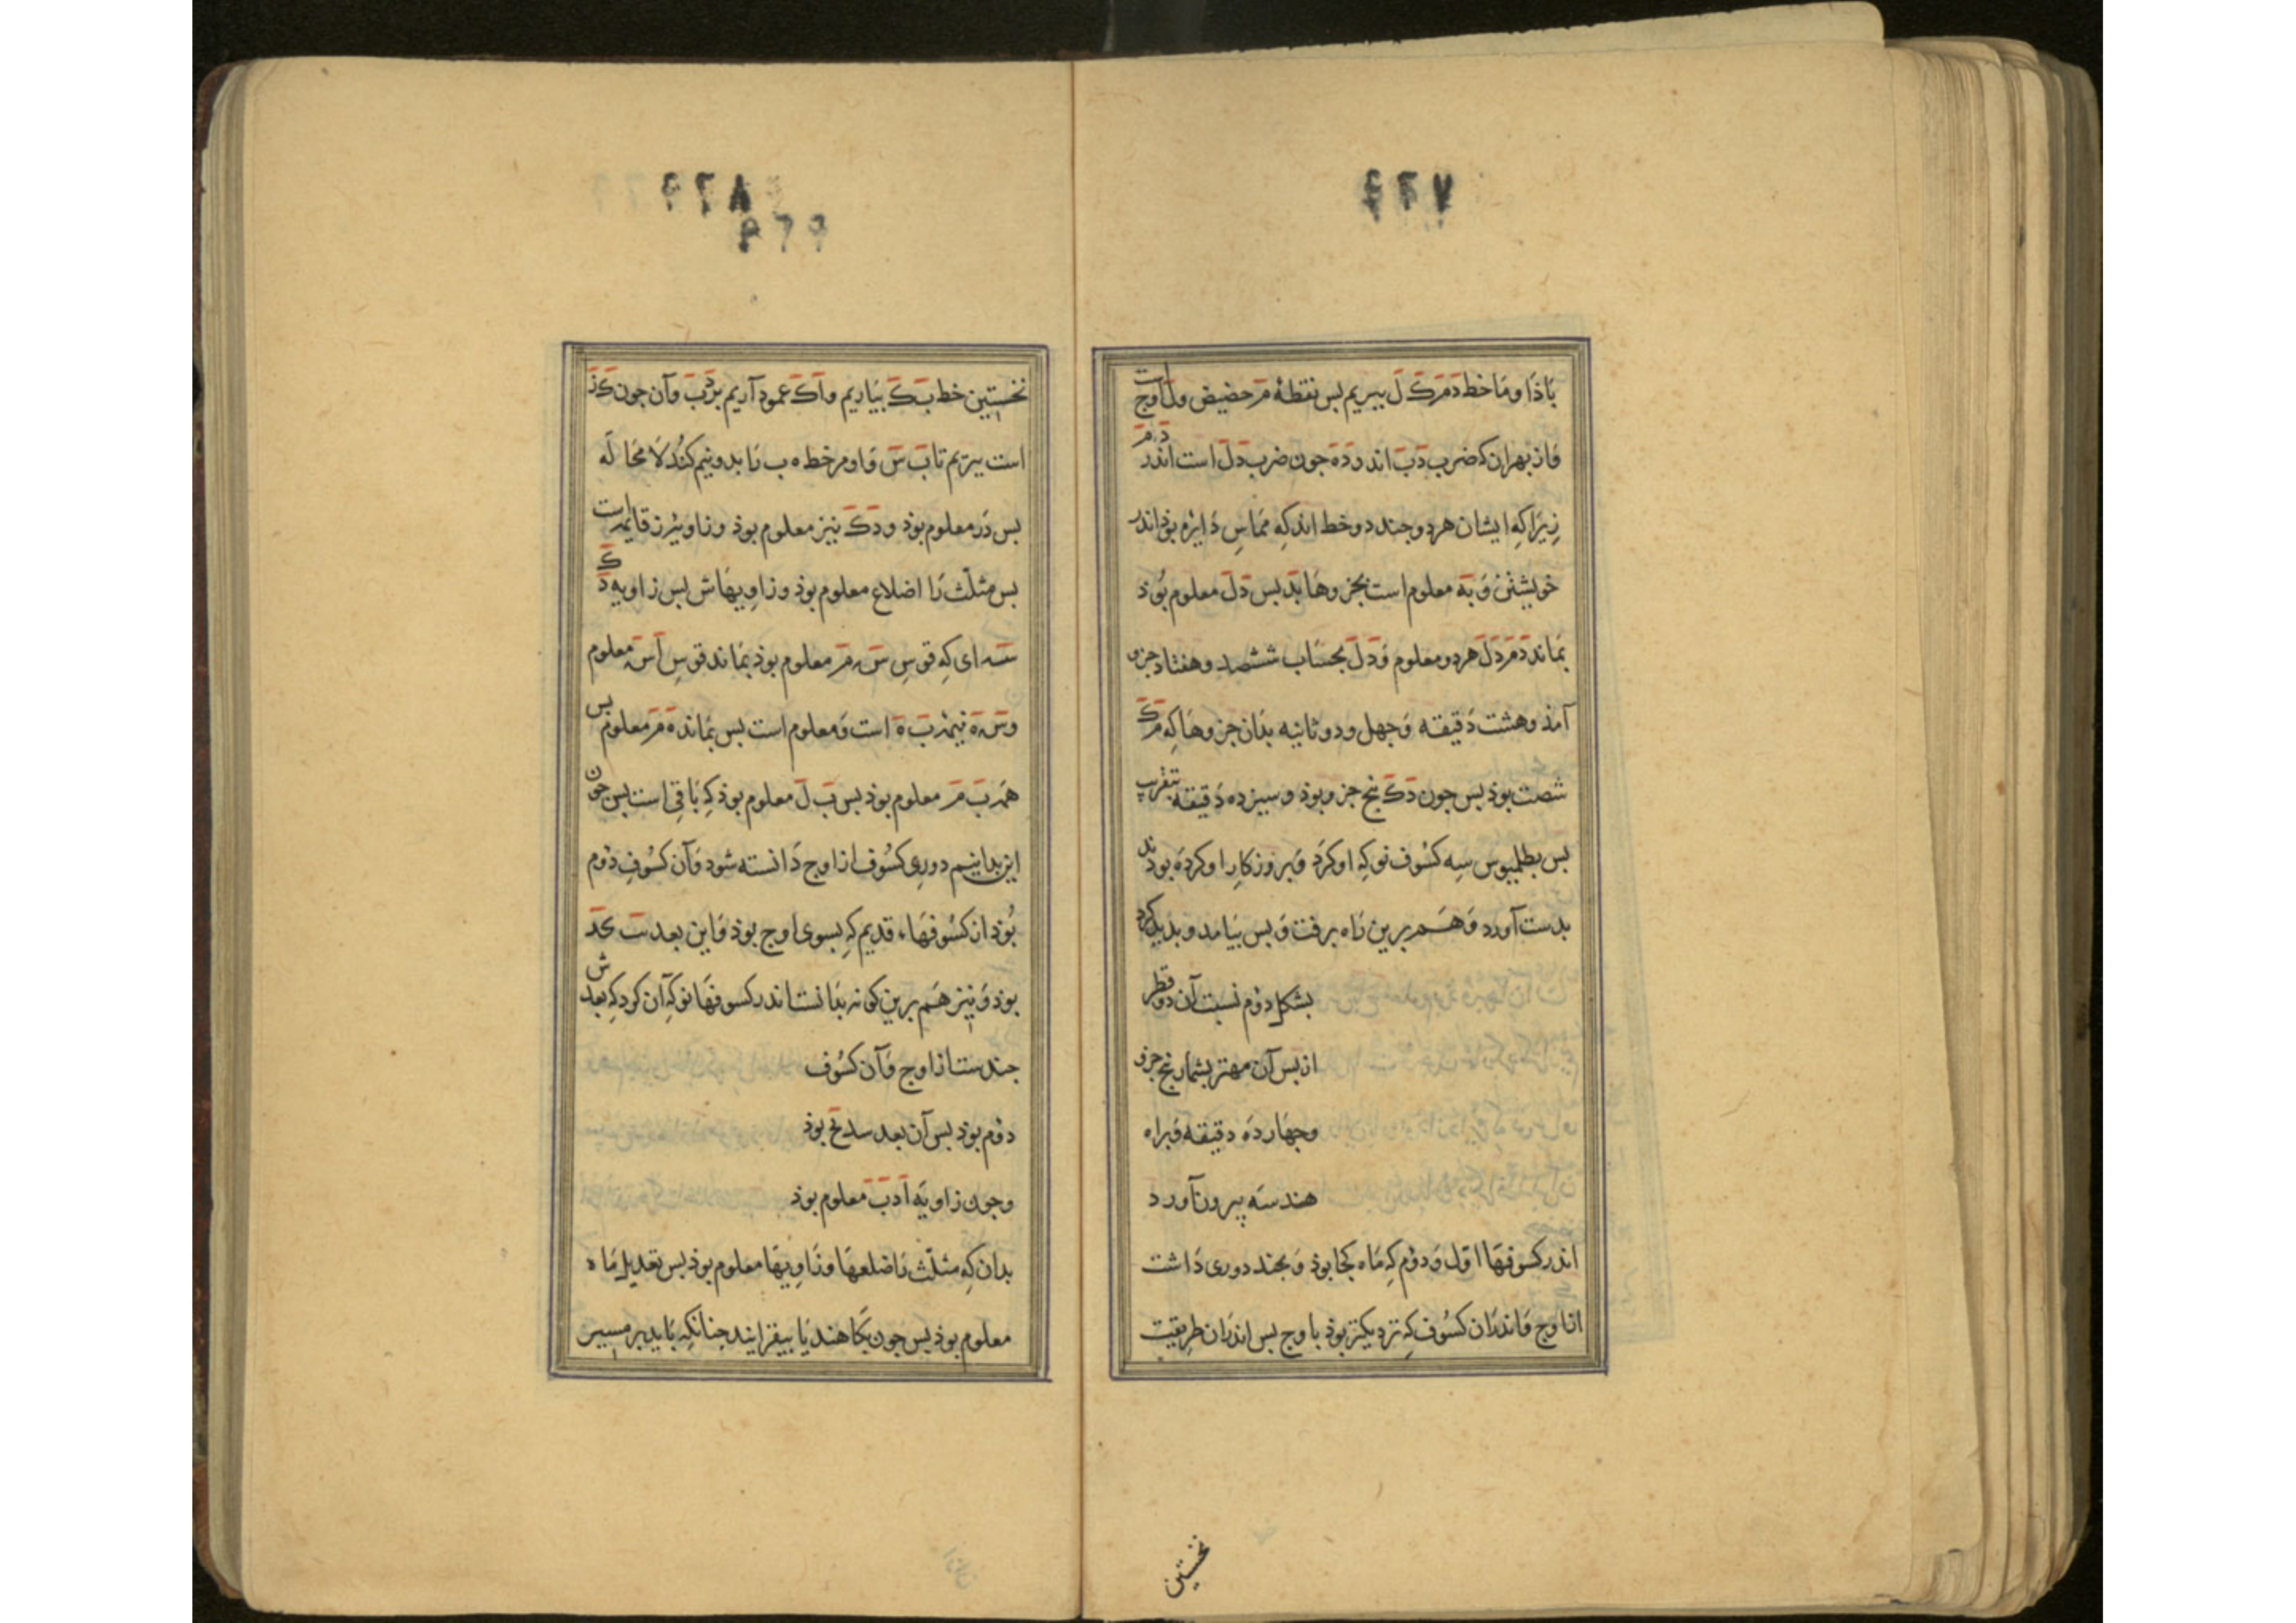 ۴۶۷
باذا و ما خط دمرک ل ببریم بس نقطهٔ م حضیض و ل اوج است
و از بهر ان که ضرب دب اندر ده جون ضرب دل است اندر دم
زیرا که ایشان هر دو جند دو خط اند که مماس دایره بوذ اندر
خویشتن و به معلوم است بجزوها بد بس دل معلوم بوذ
بماند دم دل هر دو معلوم و دل بحساب ششصد و هفتاد جزو
آمذ و هشت دقیقه و جهل و دو ثانیه بذان جزوها که مک
شصت بوذ بس جون دک بنج جزو بوذ و سیزده دقیقه بتقریب
بس بطلمیوس سه کسوف نو که او کرد و بروزکار او کرده بودند
بدست آورد و هم برین راه برفت و بس بیامد و بدید کرد
بشکل دوم نسبت آن دو قطر
از بس آن مهتر بشمار بنج جزو
و جهارده دقیقه و براه
هندسه بیرون آورد
اندر کسوفها اول و دوم که ماه کجا بوذ و بجند دوری داشت
از اوج و اندران کسوف که نزدیکتر بوذ باوج بس اندران طریقیت
نخستین
۴۶۸
۴۶۹
نخستین خط بک بیاریم و اک عمود آریم بر دب و آن جون کز
است ببریم تا ب س و او مر خط ه ب را بدو نیم کند لا محاله
بس در معلوم بوذ و دک نیز معلوم بوذ و زاویهٔ ز قایمه است
بس مثلث را اضلاع معلوم بوذ و زاویهاش بس زاویه دک
سه ای که قوس س م معلوم بوذ بماند قوس اس معلوم
و س ه نیمهٔ ب ه است و معلوم است بس بماند ه م معلوم بس
همه ب م معلوم بوذ بس ب ل معلوم بوذ که باقی است بس جون
این بدانیم دوری کسوف از اوج دانسته شود و آن کسوف دوم
بوذ از کسوفهاء قدیم که بسوی اوج بوذ و این بعدست
بوذ و نیز هم برین کونه بدانست اندر کسوفها نو که آن کرد که بعدش
جندست از اوج و آن کسوف
دوم بوذ بس آن بعد بوذ
و جون زاویه ادب معلوم بوذ
بدان که مثلث را ضلعها و زاویها معلوم بوذ بس تعدیل ماه
معلوم بوذ بس جون بکاهند یا بیفزایند جنانکه باید بر مسیر